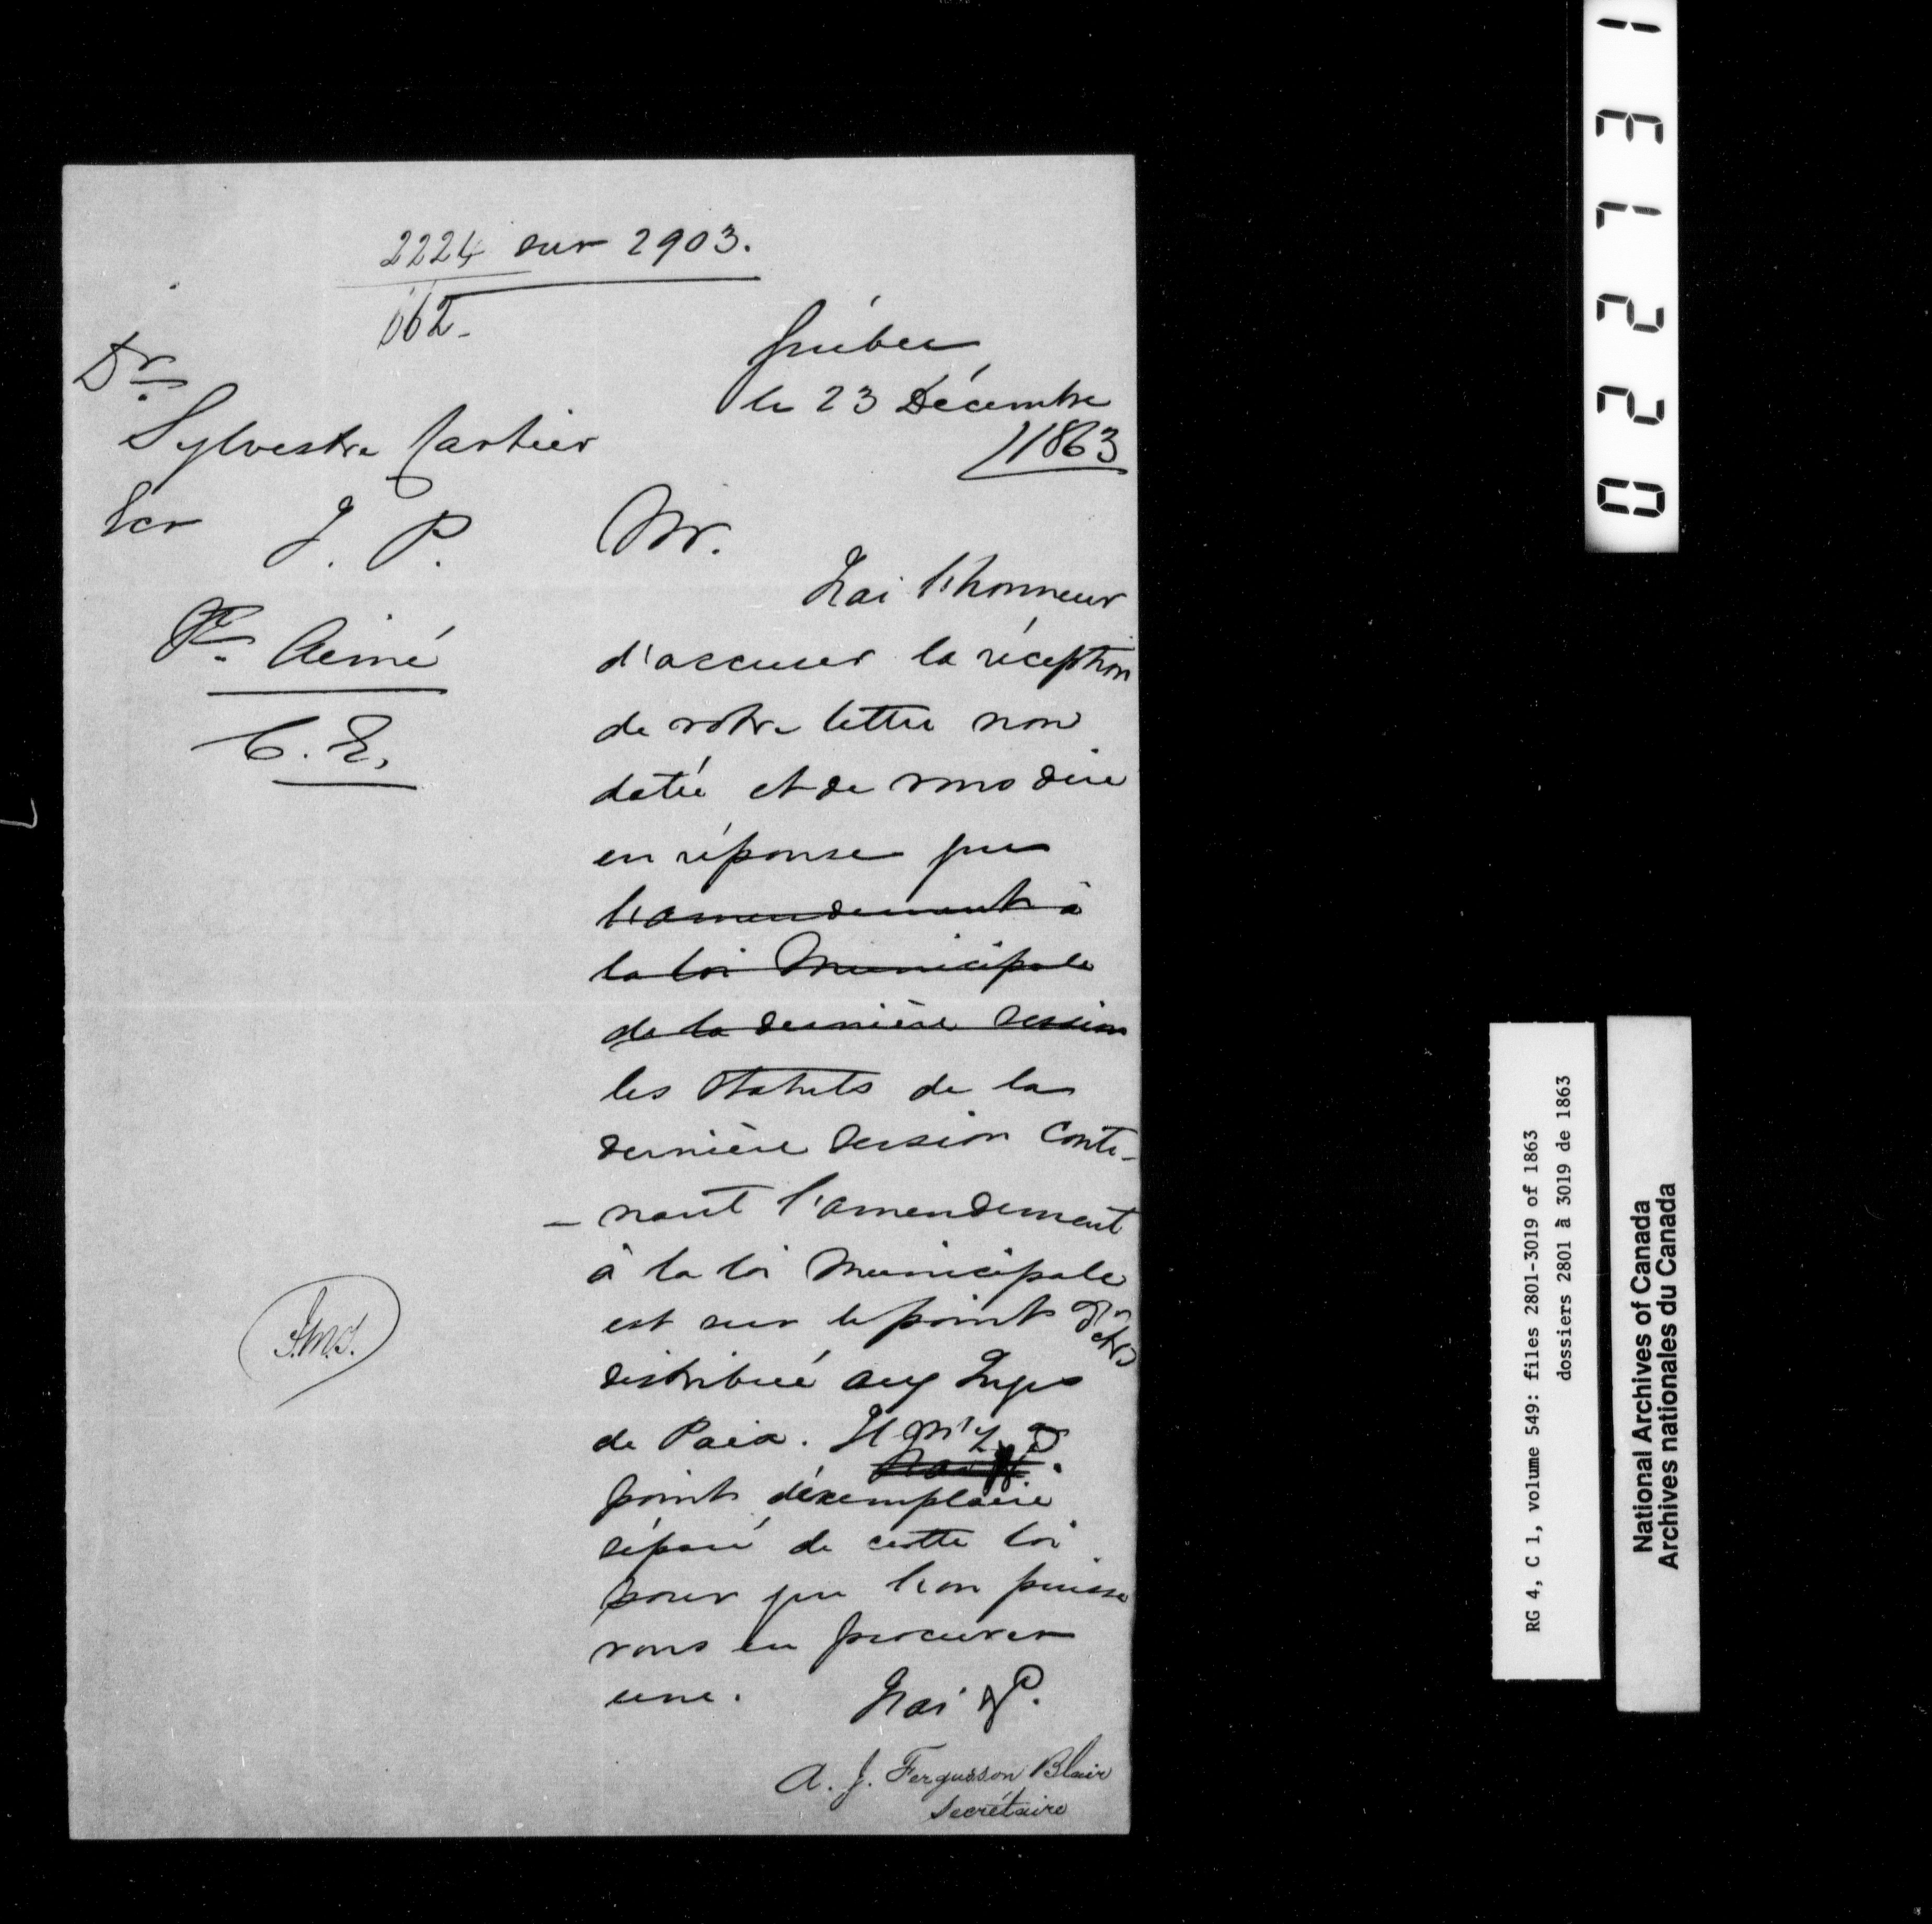 2224 sur 2903.
662-
Québec
le 23 Décembre
1863
Dr.
Sylvestre Cartier
Ecr J. P.
Ste. Aimé
C. E.
Mr.
J'ai l'honneur
d'accuser la réception
de votre lettre non
datée et de vous dire
en réponse que
l'amendement à
la loi Municipale
de la dernière session
les Statuts de la
dernière Session conte-
- nant l'amendement
à la loi Municipale
est sur le point d'
être
distribué aux Juges
de Paix. Il n'y a
point d'exemplaire
séparé de cette loi
pour que l'on puisse
vous en procurer
une. J'ai &c.
A. J. Fergusson Blair
Secrétaire
022731
RG 4, C 1, volume 549: files 2801-3019 of 1863
dossiers 2801 à 3019 de 1863
National Archives of Canada
Archives nationales du Canada